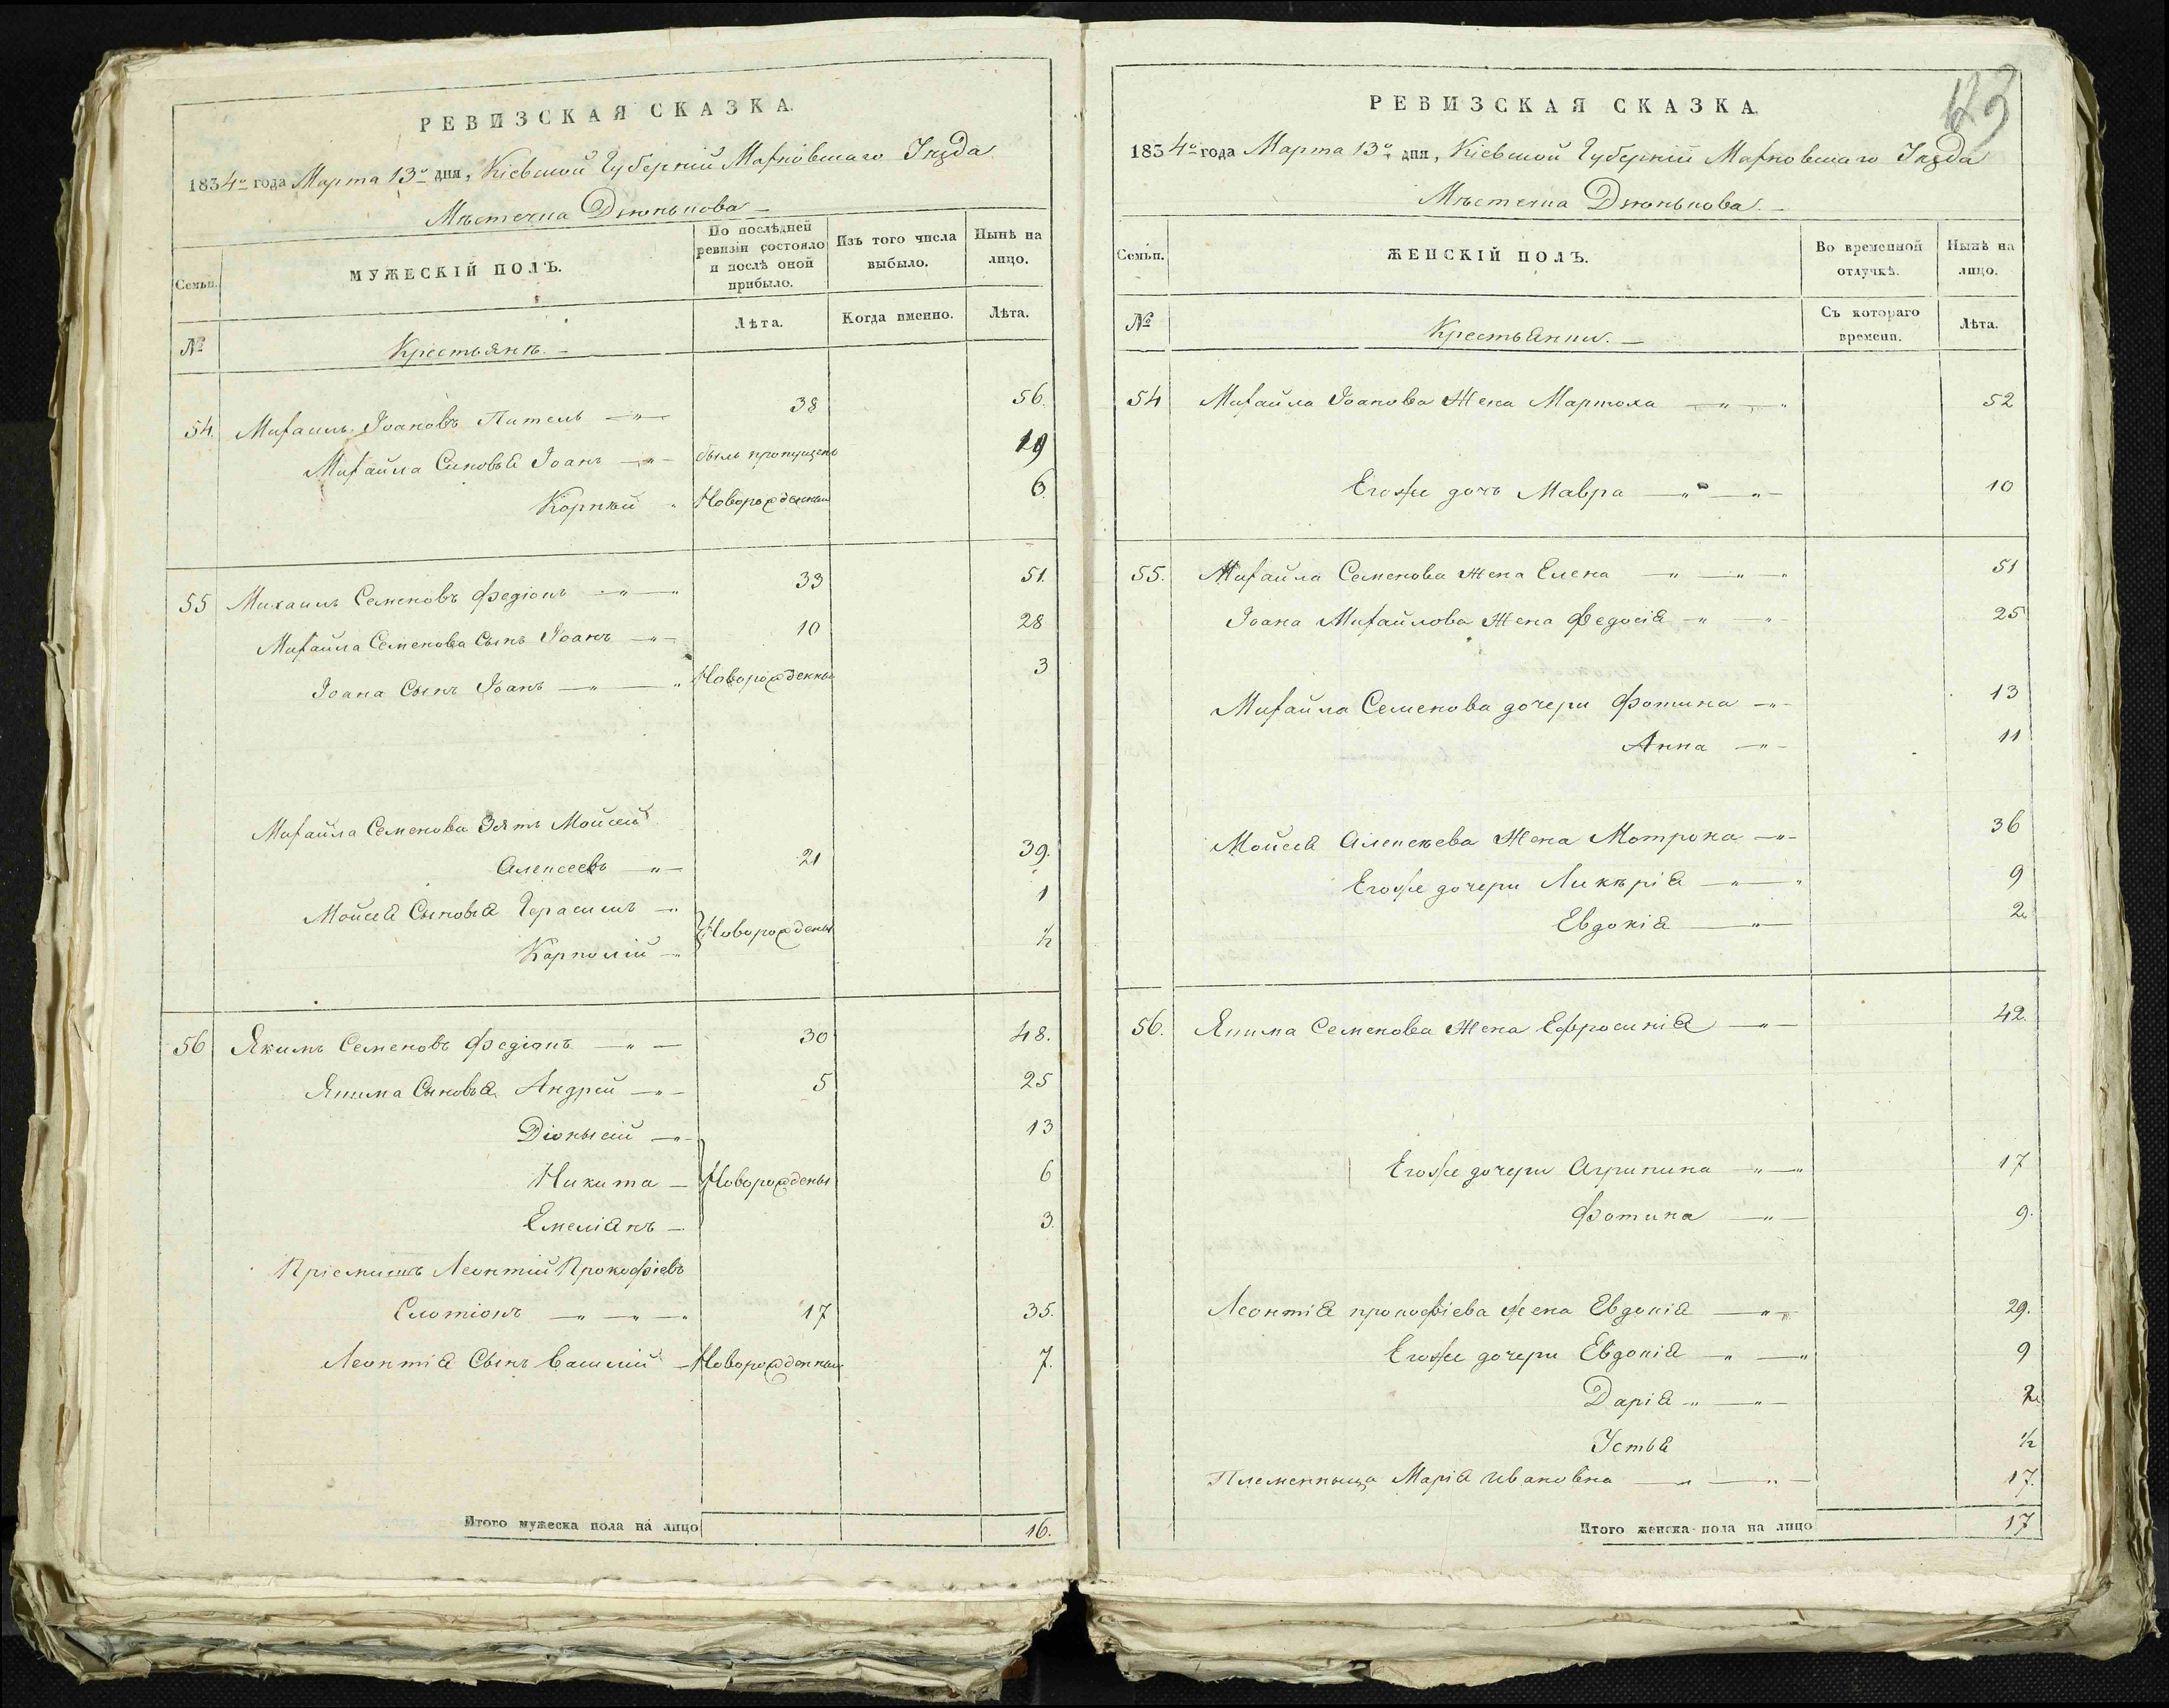 РЕВИЗСКАЯ СКАЗКА.
1834го года Марта 13го дня, Кіевской Губерніи Махновскаго Уезда
Мѣстечка Дзюнькова
Семьи.
МУЖЕСКІЙ ПОЛЪ.
По послѣдней ревизіи состояло и послѣ оной прибыло.
Изъ того числа выбыло.
Нынѣ на лицо.
№
Крестьянъ.
Лѣта.
Когда именно.
Лѣта.
54. Михаилъ Іоановъ 38 56.
Михайла Сыновья Іоанъ былъ пропущенъ 19
Корнѣй Новорожденный 6
55 Михаилъ Семеновъ Федіонъ 33 51.
Михайла Семенова Сынъ Іоанъ 10 28
Іоана Сынъ Іоанъ Новорожденный 3
Михайла Семенова Зять Мойсей
Алексеевъ 21 39.
Мойсея Сыновья Герасимъ 1
Новорожденны
½
56 Якимъ Семеновъ Федіонъ 30 48.
Якима Сыновья Андрей 5 25
Діонысій 13
Никита Новорожденны 6
Емеліянъ 3.
Пріемышъ Леонтій Прокофіевъ
Слотіонъ 17 35.
Леонтія Сынъ Василій Новорожденный 7.
Итого мужеска пола на лицо 16.
123
РЕВИЗСКАЯ СКАЗКА.
1834го года Марта 13го дня, Кіевской Губерніи Махновскаго Уезда
Мѣстечка Дзюнькова.
Семьи.
ЖЕНСКІЙ ПОЛЪ.
Во временной отлучкѣ.
Нынѣ на лицо.
№
Крестьянки.
Съ котораго времени.
Лѣта.
54 Михайла Іоанова Жена Мартоха 52
Егоже дочь Мавра 10
55. Михайла Семенова Жена Елена 51
Іоана Михайлова Жена Федосія 25
Михайла Семенова дочери Фотина 13
Анна 11
Мойсея Алексѣева Жена Мотрона 36
Егоже дочери Ликѣрія 9
Евдокія 2
56. Якима Семенова Жена Ефросинія 42.
Егоже дочери Агрипина 17
Фотина 9.
Леонтія прокофіева жена Евдокія 29.
Егоже дочери Евдокія 9
Дарія 2
Устья ½
Племенныца Марія Ивановна 17.
Итого женска пола на лицо 17